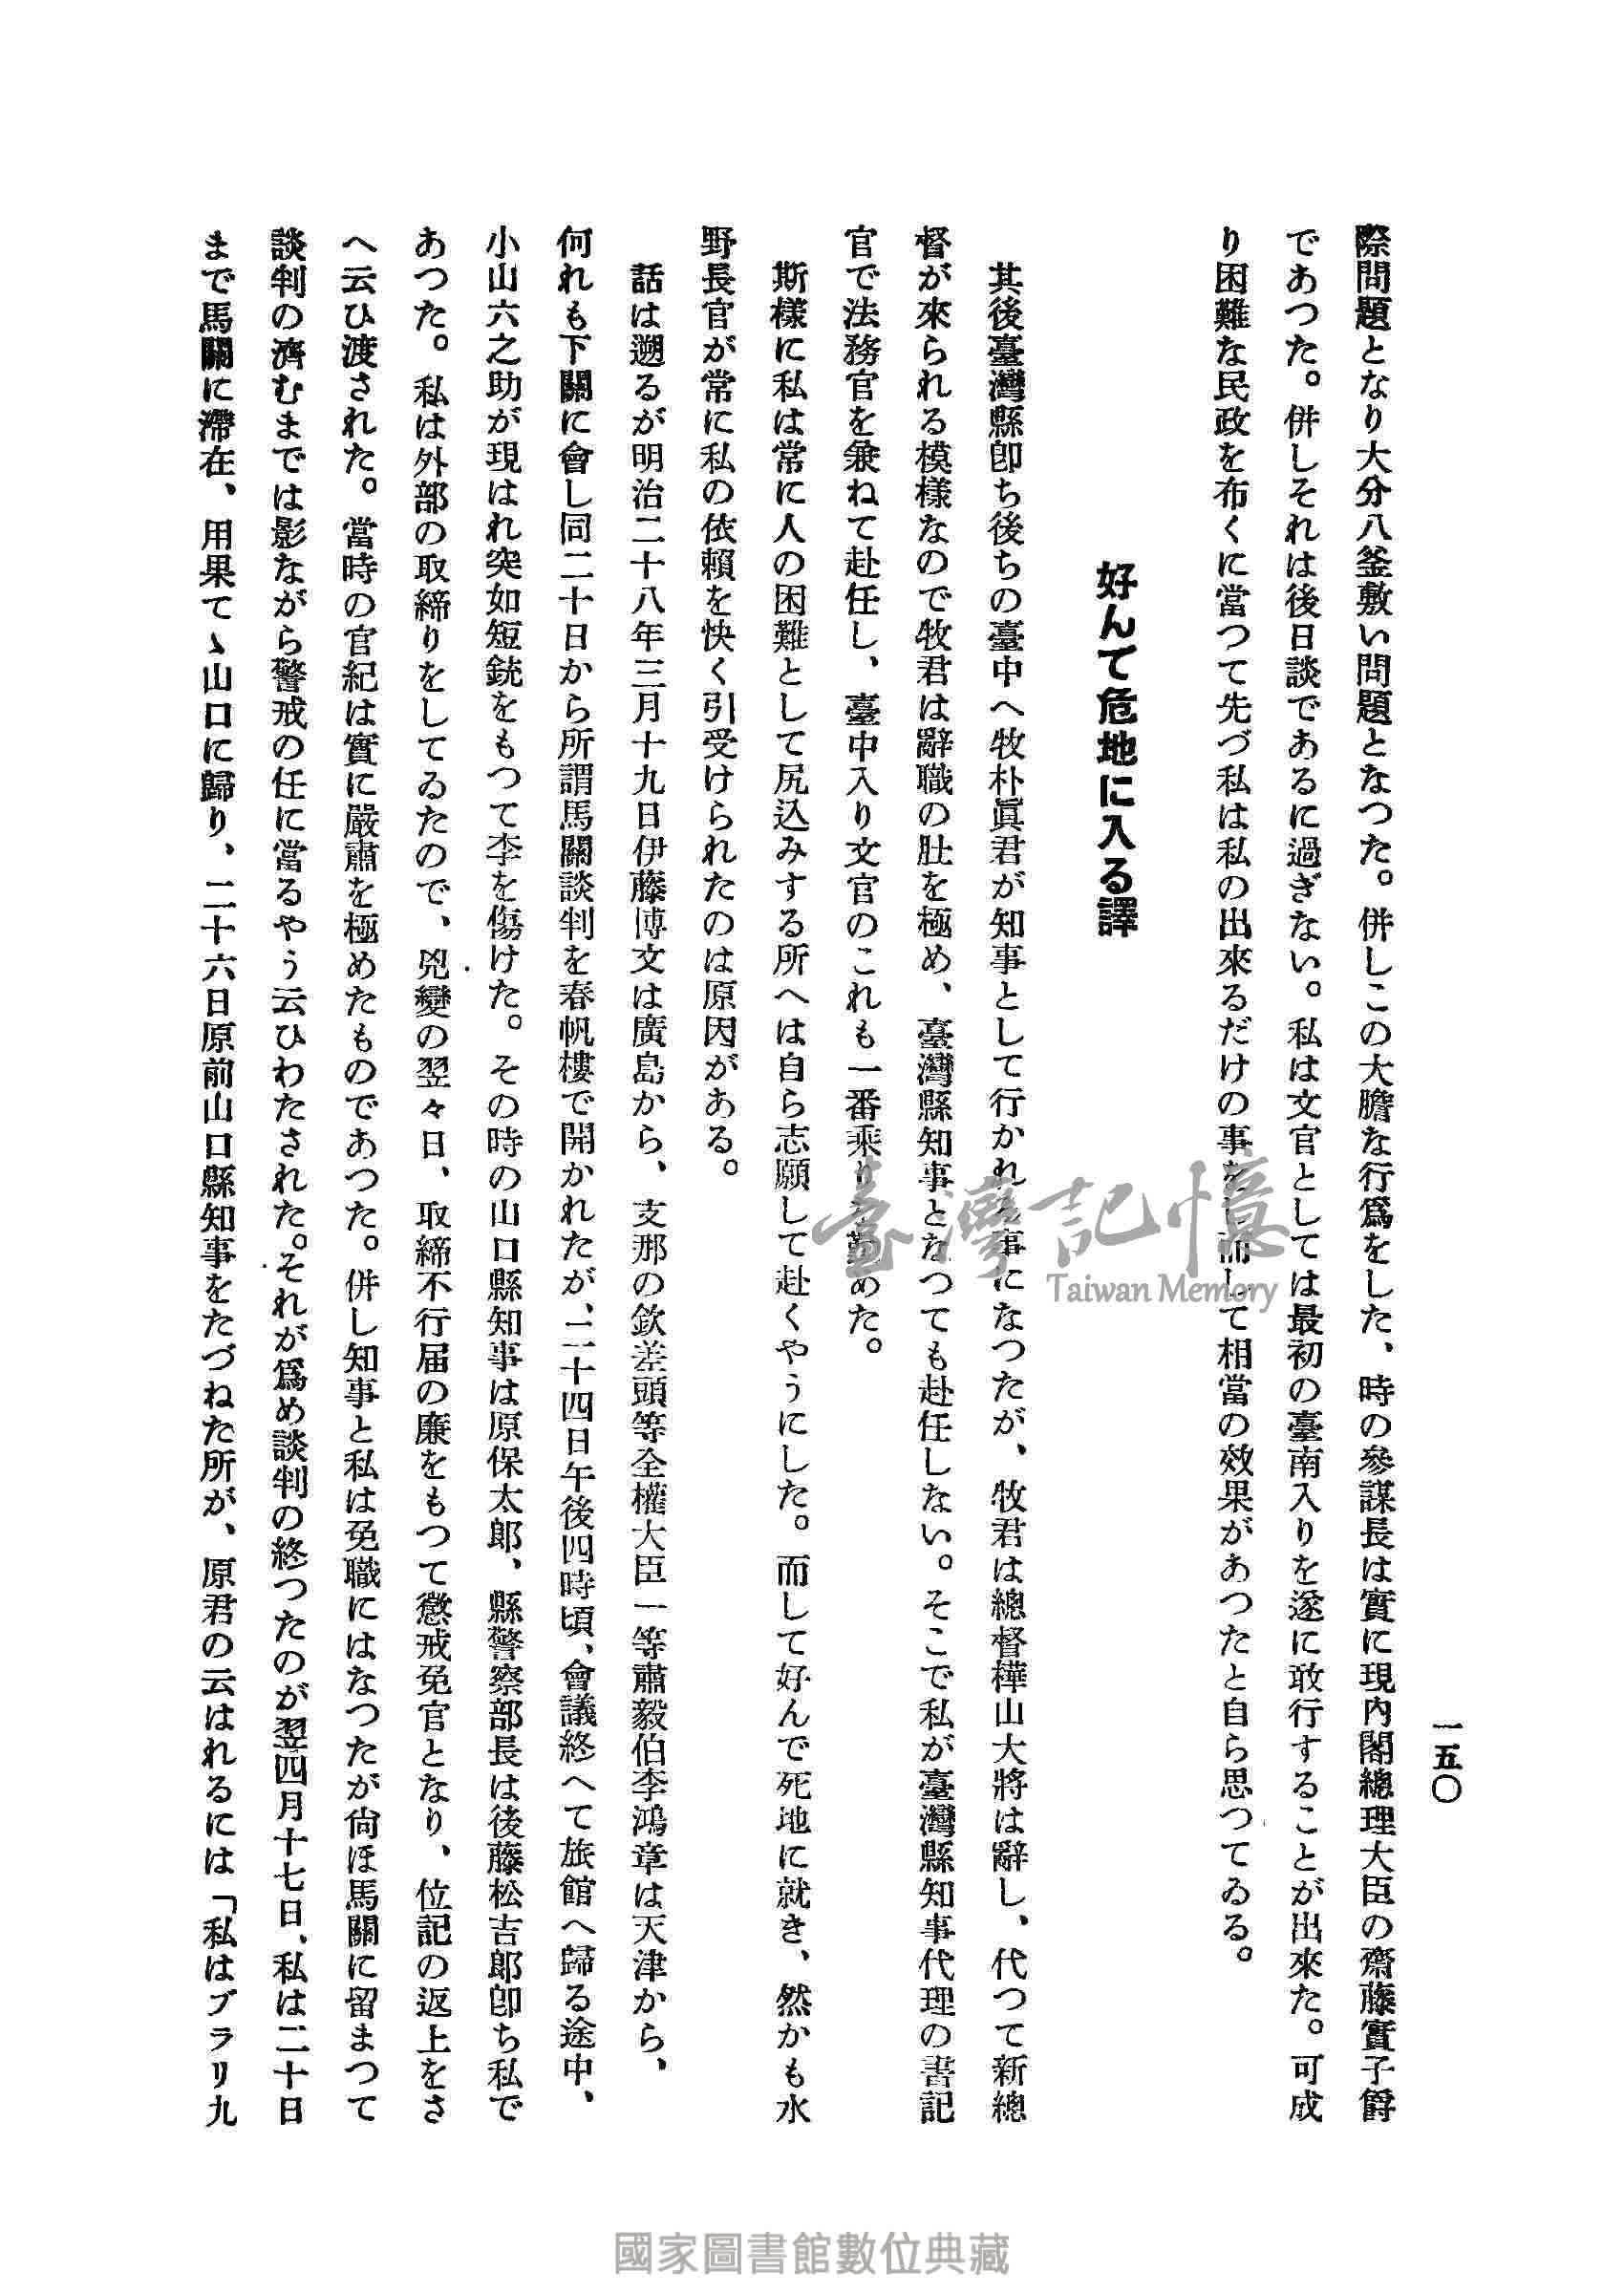 一五〇
際問題となり大分八釜敷い問題となつた。併しこの大膽な行爲をした、時の參謀長は實に現内閣總理大臣の齋藤實子爵
であつた。併しそれは後日談であるに過ぎない。私は文官としては最初の臺南入りを遂に敢行することが出來た。可成
り困難な民政を布くに當つて先づ私は私の出來るだけの事をし而して相當の效果があつたと自ら思つてゐる。
好んて危地に入る譯
其後臺灣縣卽ち後ちの臺中へ牧朴眞君が知事として行かれる事になつたが、牧君は總督樺山大將は辭し、代つて新總
督が來られる模樣なので牧君は辭職の肚を極め、臺灣縣知事となつても赴任しない。そこで私が臺灣縣知事代理の書記
官で法務官を兼ねて赴任し、臺中入り文官のこれも一番乘りを勤めた。
斯樣に私は常に人の困難として尻込みする所へは自ら志願して赴くやうにした。而して好んで死地に就き、然かも水
野長官が常に私の依賴を快く引受けられたのは原因がある。
話は遡るが明治二十八年三月十九日伊藤博文は廣島から、支那の欽差頭等全權大臣一等肅毅伯李鴻章は天津から、
何れも下關に會し同二十日から所謂馬關談判を春帆樓で開かれたが、二十四日午後四時頃、會議終へて旅館へ歸る途中、
小山六之助が現はれ突如短銃をもつて李を傷けた。その時の山口縣知事は原保太郎、縣警察部長は後藤松吉郎卽ち私で
あつた。私は外部の取締りをしてゐたので、兇變の翌々日、取締不行届の廉をもつて懲戒免官となり、位記の返上をさ
へ云ひ渡された。當時の官紀は實に嚴肅を極めたものであつた。併し知事と私は免職にはなつたが尙ほ馬關に留まつて
談判の濟むまでは影ながら警戒の任に當るやう云ひわたされた。それが爲め談判の終つたのが翌四月十七日、私は二十日
まで馬關に滯在、用果てゝ山口に歸り、二十六日原前山口縣知事をたづねた所が、原君の云はれるには「私はブラリ九
臺灣記憶
Taiwan Memory
國家圖書館數位典藏